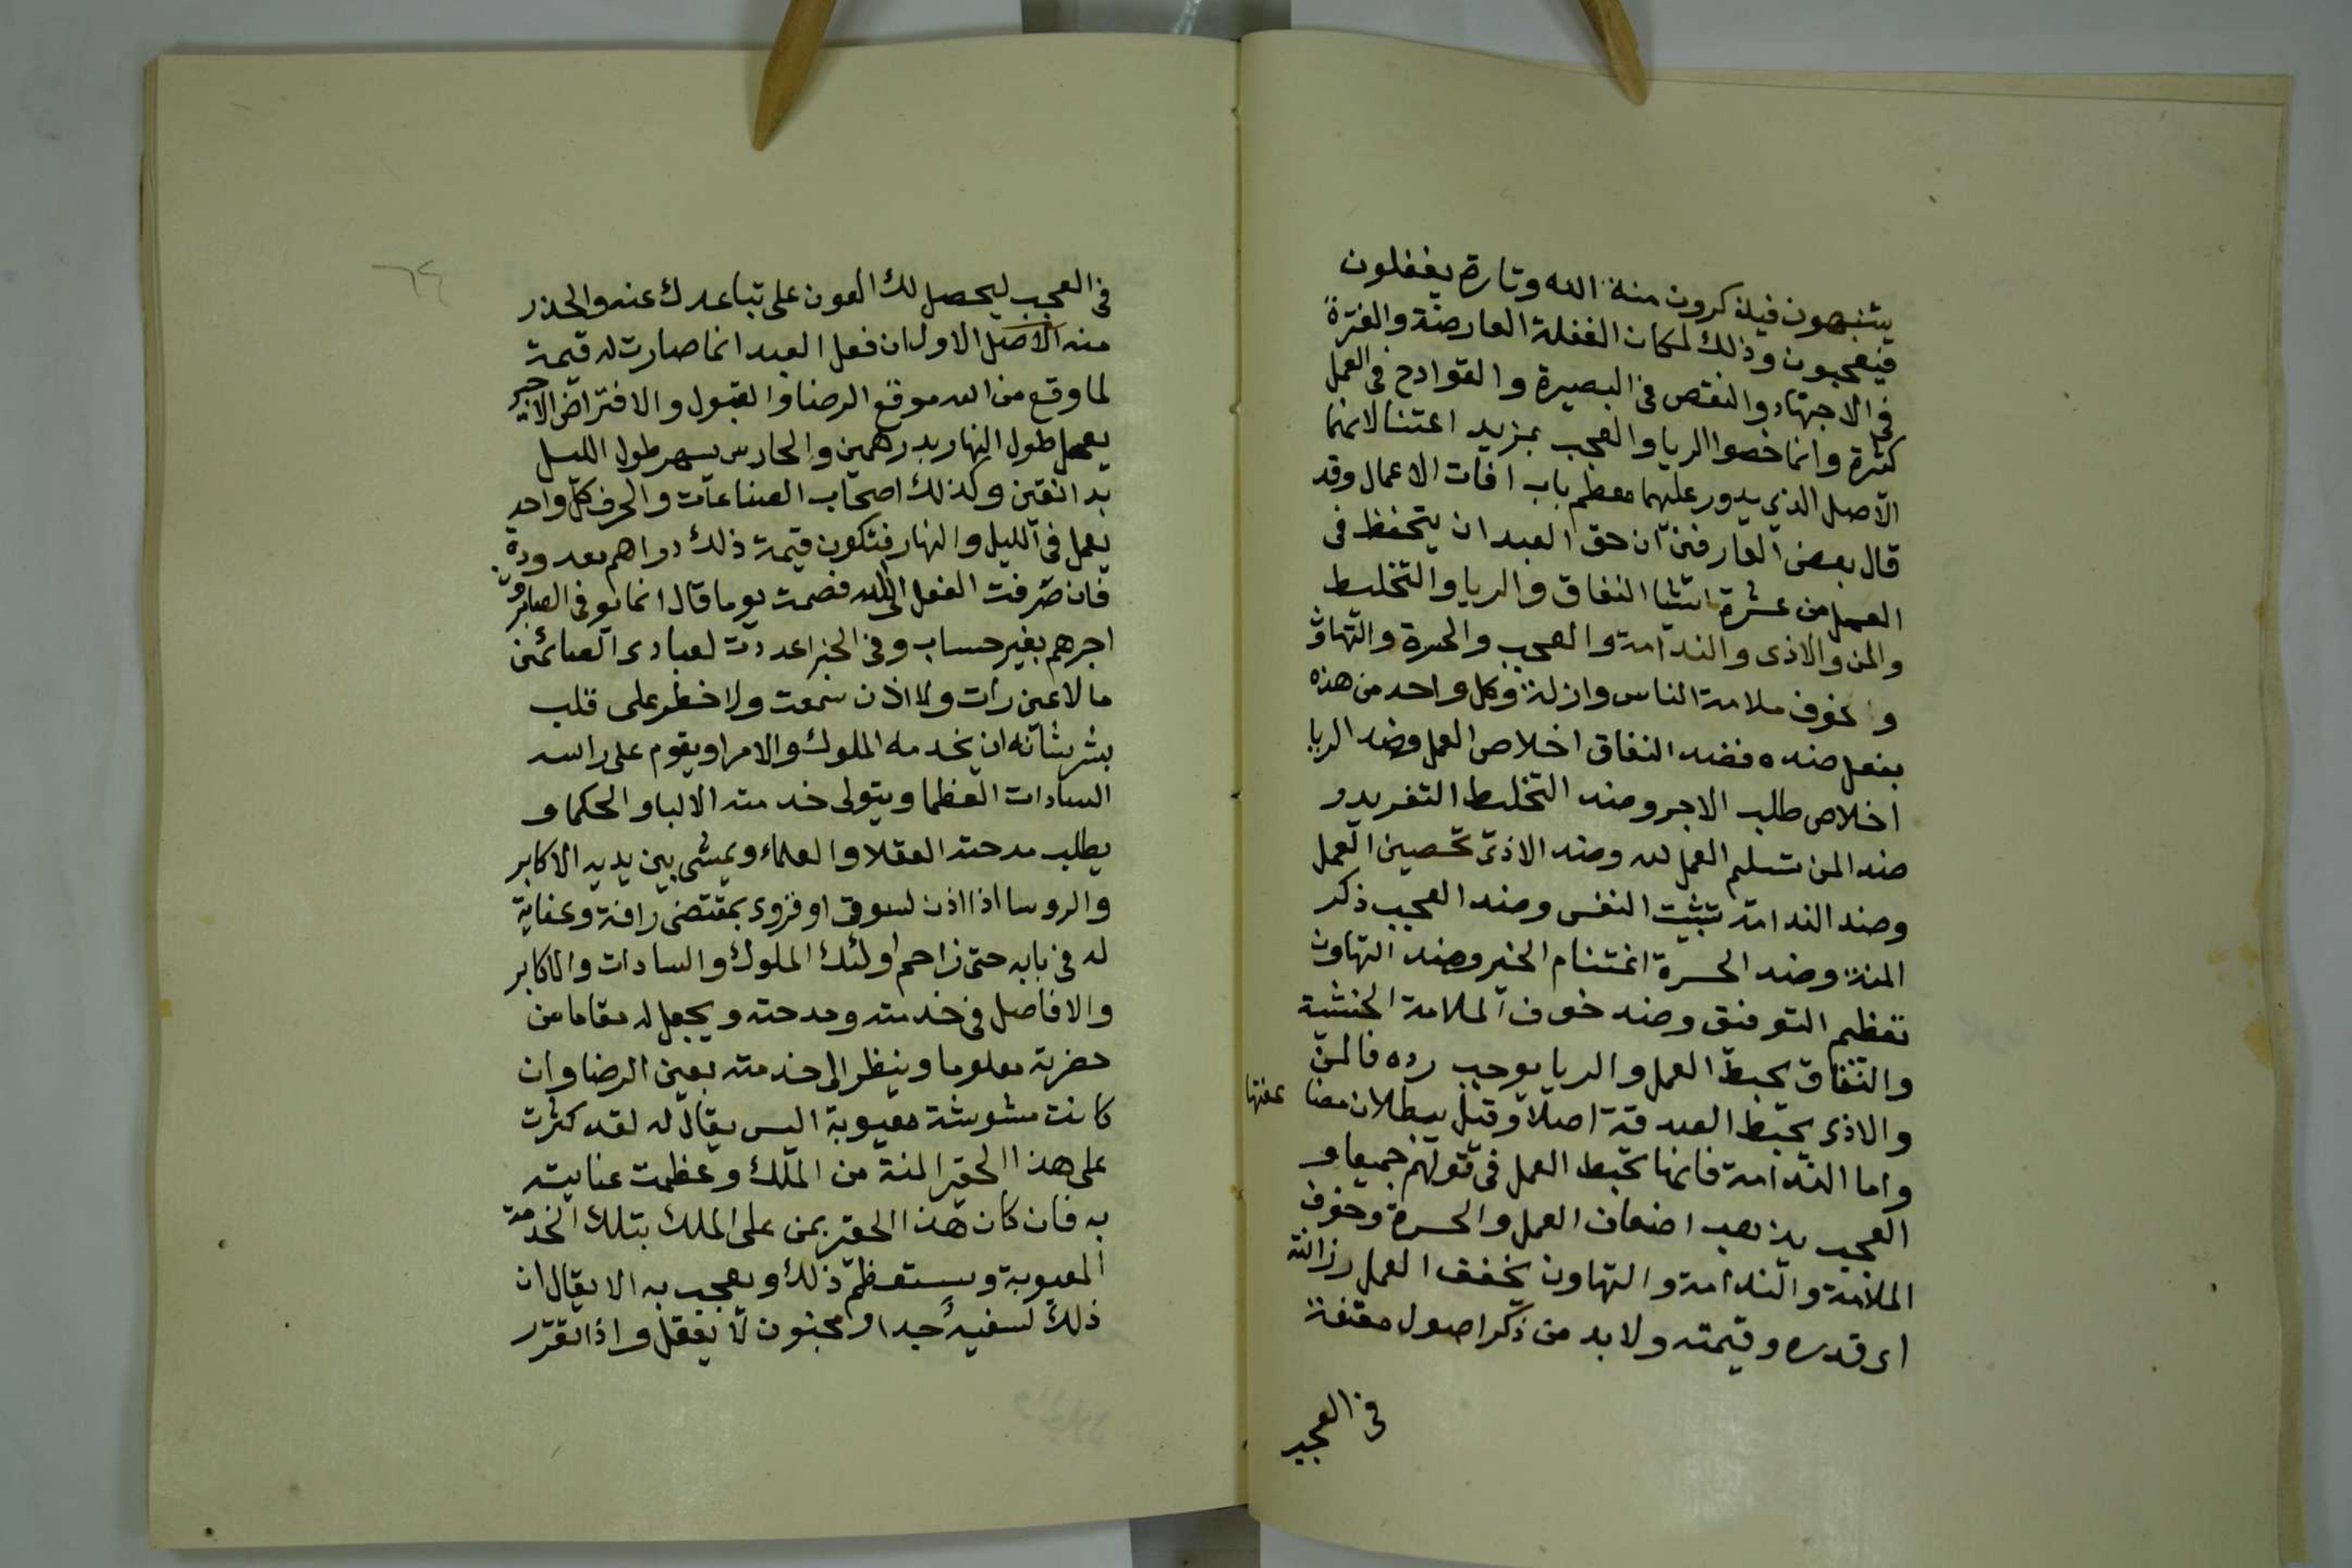 يتنبهون فيذكرون منة الله وتارة يغفلون
فيعجبون وذلك لمكان الغفلة العارضة والفترة
فى الاجتهاد والنقص فى البصيرة والقوادح فى العمل
كثرة وانما خصوا الريا والعجب بمزيد اعتنا لانهما
الاصل الذى يدور عليهما معظم باب افات الاعمال وقد
قال بعض العارفين ان حق العبد ان يتحفظ فى
العمل من عشرة اشيا النفاق والريا والتخليط
والمن والاذى والندامة والعجب والحسرة والتهاون
وخوف ملامة الناس وازلة وكل واحد من هذه
بفعل ضده فضد النفاق اخلاص العمل وضد الريا
اخلاص طلب الاجر وضد التخليط التفريد و
ضد المن تسليم العمل لله وضد الاذى تحصين العمل
وضد الندامة تثبيت النفس وضد العجب ذكر
المنة وضد الحسرة اغتنام الخير وضد التهاون
تعظيم التوفيق وضد خوف الملامة الخشية
والنفاق يحبط العمل والريا يوجب رده فالمن
والاذى يحبط الصدقة اصلا وقيل يبطلان مضا عفتها
واما الندامة فانها تحبط العمل فى قولهم جميعا و
العجب يذهب اضعاف العمل والحسرة وخوف
الملامة والندامة والتهاون يخفف العمل رزانته
اى قدره وقيمته ولا بد من ذكر اصول مقنعة
فى العجب
٦٤
فى العجب ليحصل لك العون على تباعدك عنه والحذر
منه الاصل الاول ان فعل العبد انما صارت له قيمة
لما وقع من الله موقع الرضا والقبول والافترا الاجير
يعمل طول النهار بدرهمين والحارس يسهر طول الليل
بدانقين وكذلك اصحاب الصناعات والحرف كل واحد
يعمل فى الليل والنهار فتكون قيمة ذلك دراهم معدودة
فان صرفت الفعل الى الله فصمت يوما قال انما يوفى الصابرون
اجرهم بغير حساب وفى الخبر اعددت لعبادى الصائمين
ما لا عين رات ولا اذن سمعت ولا خطر على قلب
بشر شانه ان يخدمه الملوك والامرا ويقوم على راسه
السادات العظما ويتولى خدمته الالبا والحكما و
يطلب مدحته العقلا والعلماء ويمشى بين يديه الاكابر
والروسا اذا اذن لسوقى او قروى بمقتضى رافة وعناية
له فى بابه حتى زاحم اولئك الملوك والسادات والاكابر
والافاضل فى خدمته ومدحته ويجعل له مقاما من
حضرته معلوما وينظر الى خدمته بعين الرضا وان
كانت مشوشة معيوبة اليس يقال له لقد كثرت
على هذا الحقير المنة من الملك وعظمت عنايته
به فان كان هذا الحقير يمن على الملك بتلك الخدمة
المعيوبة ويستعظم ذلك ويعجب به الا يقال ان
ذلك لسفيه جدا او مجنون لا يعقل واذا تقرر